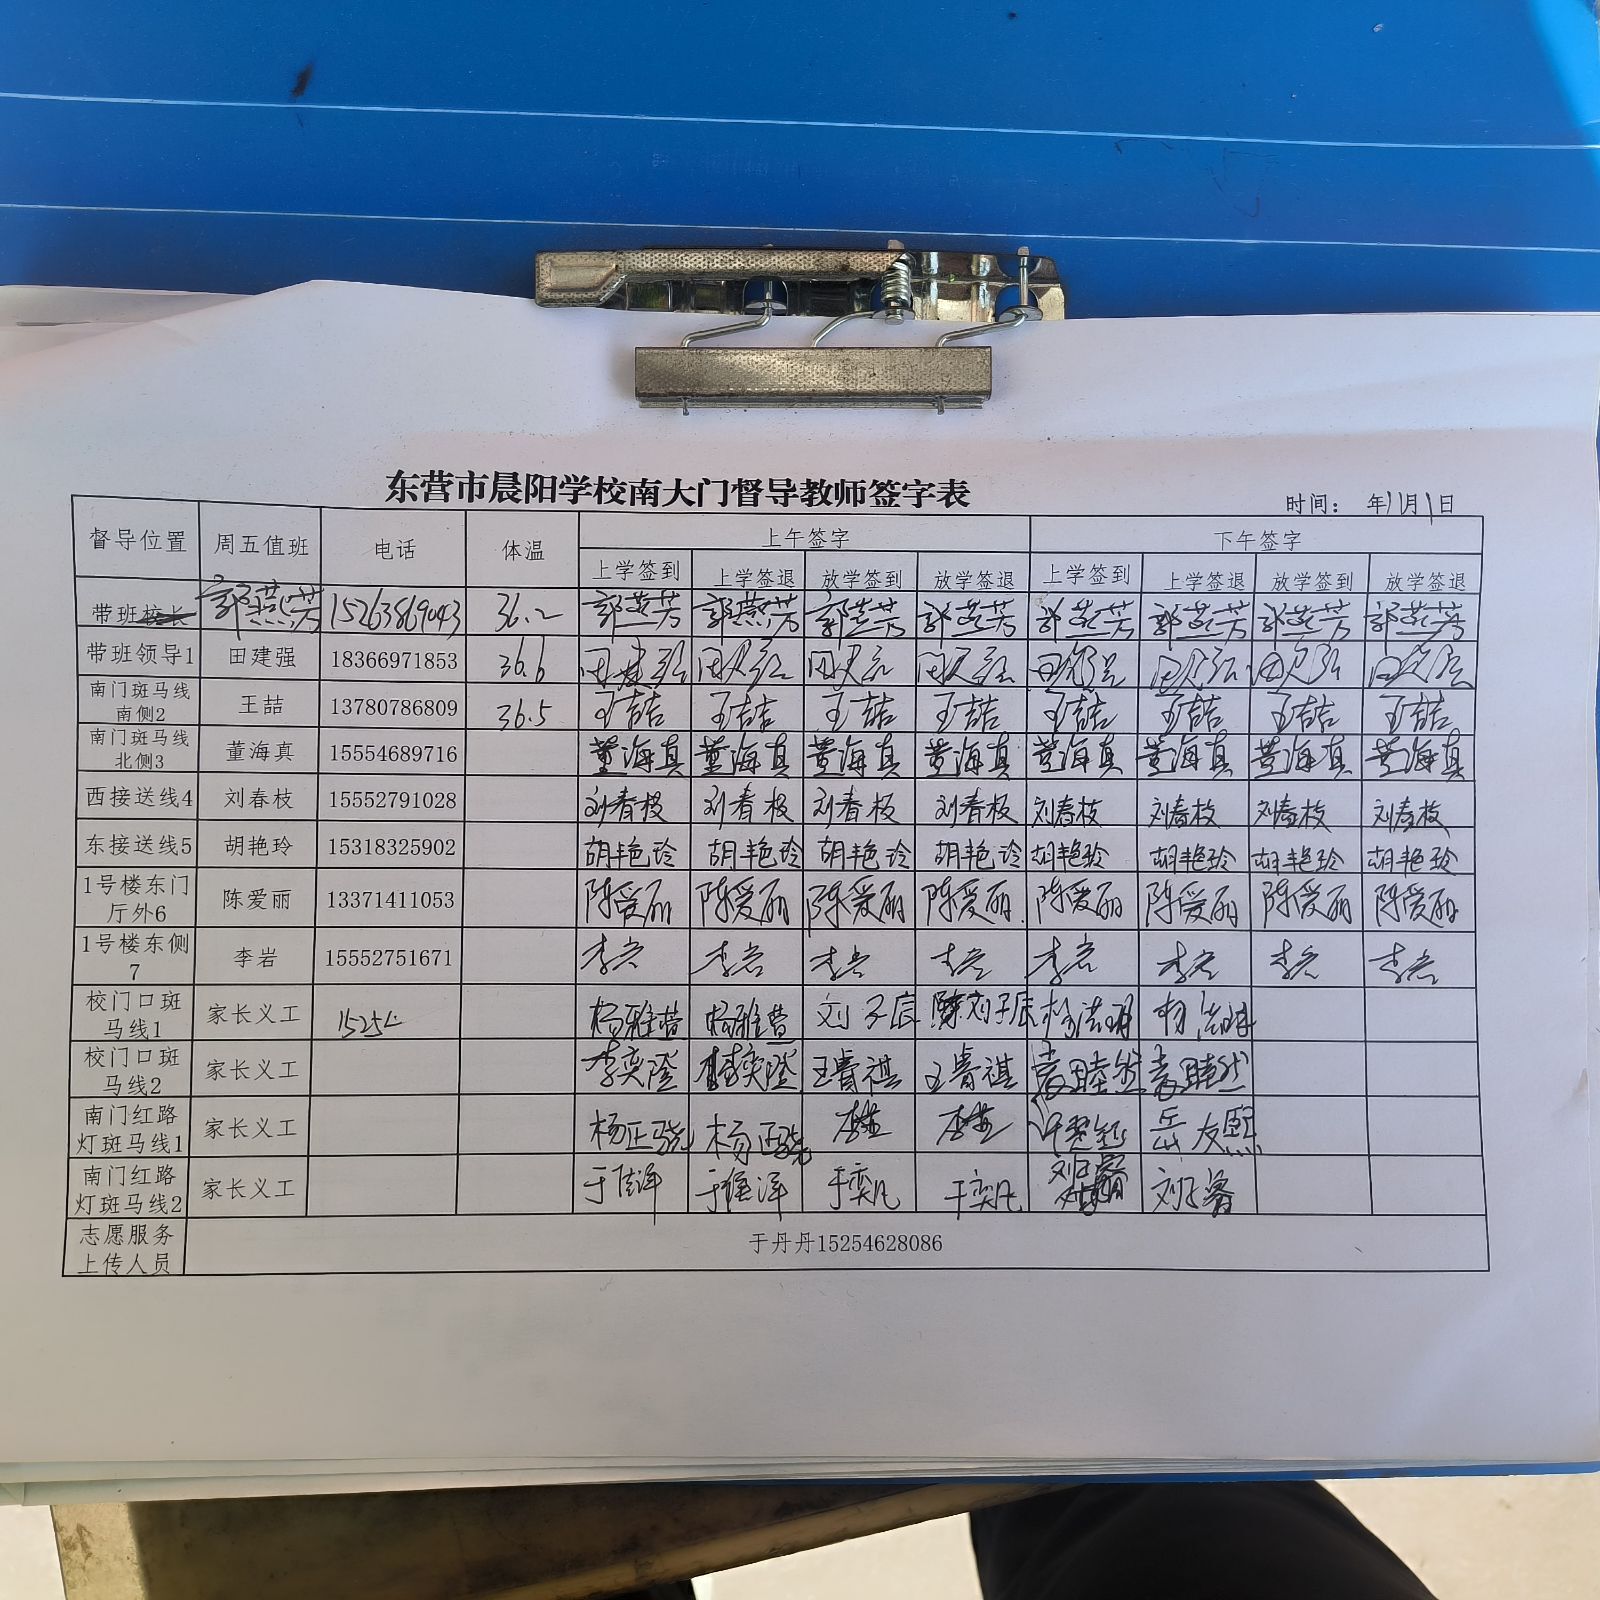 东营市晨阳学校南大门督导教师签字表
时间： 年11月1日
督导位置 周五值班 电话 体温 上午签字 下午签字
上学签到 上学签退 放学签到 放学签退 上学签到 上学签退 放学签到 放学签退
带班校长 郭燕芳 15263869043 36.2 郭燕芳 郭燕芳 郭燕芳 郭燕芳 郭燕芳 郭燕芳 郭燕芳 郭燕芳
带班领导1 田建强 18366971853 36.6 田建强 田建强 田建强 田建强 田建强 田建强 田建强 田建强
南门斑马线
南侧2 王喆 13780786809 36.5 王喆 王喆 王喆 王喆 王喆 王喆 王喆 王喆
南门斑马线
北侧3 董海真 15554689716 董海真 董海真 董海真 董海真 董海真 董海真 董海真 董海真
西接送线4 刘春枝 15552791028 刘春枝 刘春枝 刘春枝 刘春枝 刘春枝 刘春枝 刘春枝 刘春枝
东接送线5 胡艳玲 15318325902 胡艳玲 胡艳玲 胡艳玲 胡艳玲 胡艳玲 胡艳玲 胡艳玲 胡艳玲
1号楼东门
厅外6 陈爱丽 13371411053 陈爱丽 陈爱丽 陈爱丽 陈爱丽 陈爱丽 陈爱丽 陈爱丽 陈爱丽
1号楼东侧
7 李岩 15552751671 李岩 李岩 李岩 李岩 李岩 李岩 李岩 李岩
校门口斑
马线1 家长义工 15254 杨雅萱 杨雅萱 刘子辰 刘子辰
校门口斑
马线2 家长义工 李奕澄 李奕澄 王睿祺 王睿祺 袁睦然 袁睦然
南门红路
灯斑马线1 家长义工 杨正骁 杨正骁 岳友熙
南门红路
灯斑马线2 家长义工 于奕凡 于奕凡
志愿服务
上传人员 于丹丹15254628086